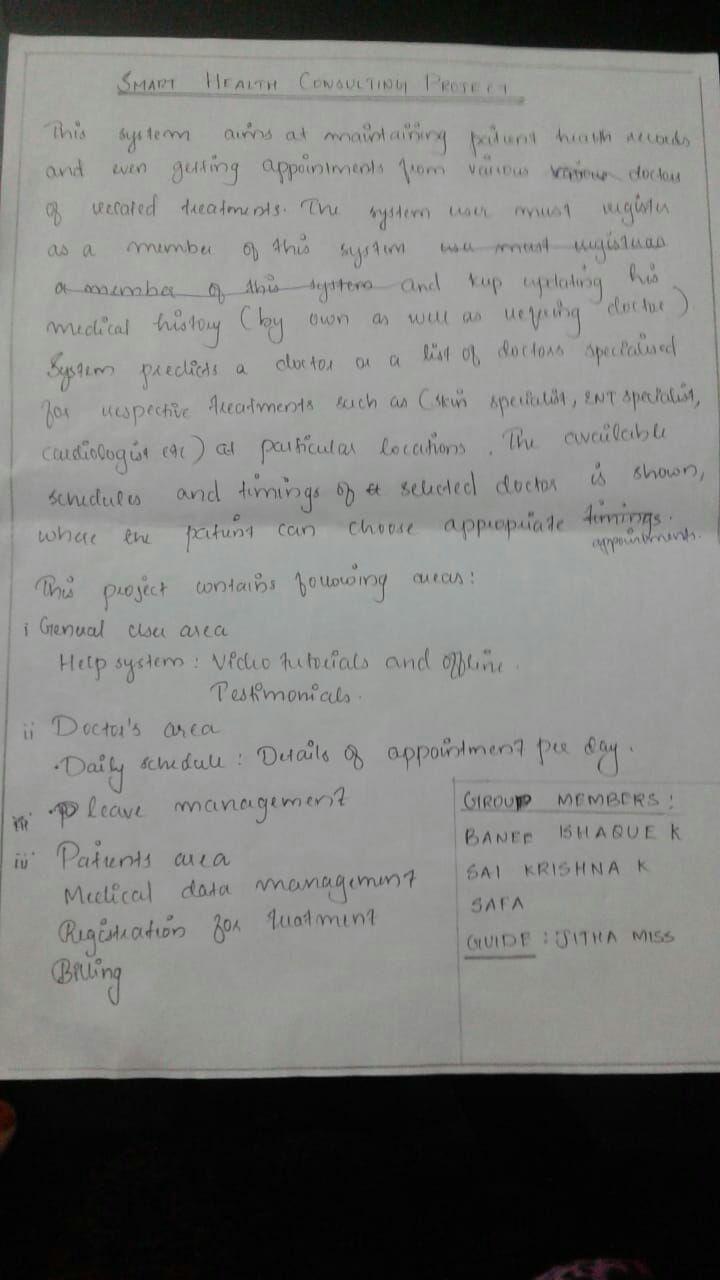 SMART HEALTH CONSULTING PROJECT
This system aims at maintaining patient health records
and even getting appointments from various various doctors
of related treatments. The system user must register
as a member of this system use must register as
a member of this system and keep updating his
medical history (by own as well as refering doctor)
System predicts a doctor or a list of doctors specialised
for respective treatments such as (skin specialist, ENT specialist,
cardiologist etc) at particular locations. The available
schedules and timings of selected doctor is shown,
where the patient can choose appropriate timings.
appointments.
This project contains following areas:
i General user area
Help system: Video tutorials and offline.
Testimonials.
ii Doctor's area
·Daily schedule: Details of appointment per day.
iii · leave management
iv Patients area
Medical data management
Registration for treatment
Billing
GROUP MEMBERS:
BANEE ISHAQUE K
SAI KRISHNA K
SAFA
GUIDE: JITHA MISS